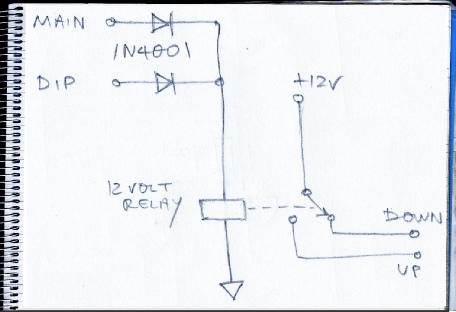 MAIN
1N4001
DIP
+12V
12 VOLT
RELAY
DOWN
UP